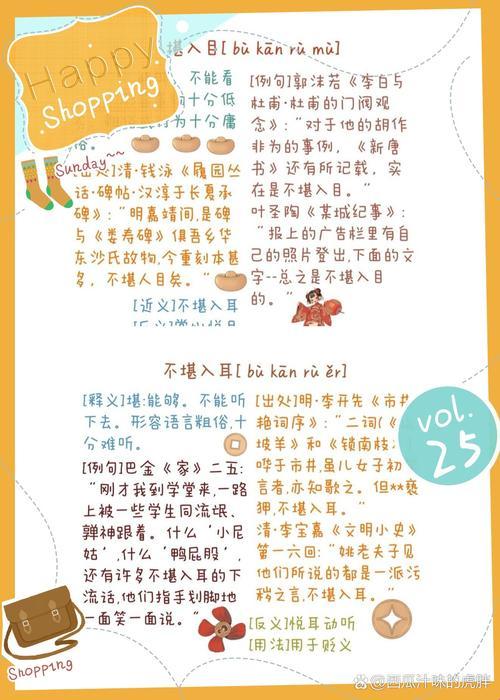 Happy
Shopping
Sunday~~
堪入目[ bù kān rù mù]
不能看
十分低
为十分庸
俗。
[出处]清·钱泳《履园丛
话·碑帖·汉淳于长夏承
碑》：“明嘉靖间,是碑
与《娄寿碑》俱吾乡华
东沙氏故物,今重刻本甚
多，不堪入目矣。”
[近义]不堪入耳
[反义]赏心悦目
[例句]郭沫若《李白与
杜甫·杜甫的门阀观
念》：“对于他的胡作
非为的事例，《新唐
书》还有所记载，实
在是不堪入目。”
叶圣陶《某城纪事》：
“报上的广告栏里有自
己的照片登出,下面的文
字--总之是不堪入目
的。”
不堪入耳[ bù kān rù ěr]
[释义]堪:能够。不能听
下去。形容语言粗俗,十
分难听。
[例句]巴金《家》二五:
“刚才我到学堂来,一路
上被一些学生同流氓、
亸神跟着。什么‘小尼
姑’,什么‘鸭屁股’，
还有许多不堪入耳的下
流话,他们指手划脚地
一面笑一面说。”
[出处]明·李开先《市井
艳词序》：“二词(《
坡羊》和《锁南枝
哗于市井,虽儿女子初
言者,亦知歌之。但**亵
狎,不堪入耳。”
清·李宝嘉《文明小史》
第一六回:“姚老夫子见
他们所说的都是一派污
秽之言,不堪入耳。”
[反义]悦耳动听
[用法]用于贬义
vol.
25
Shopping